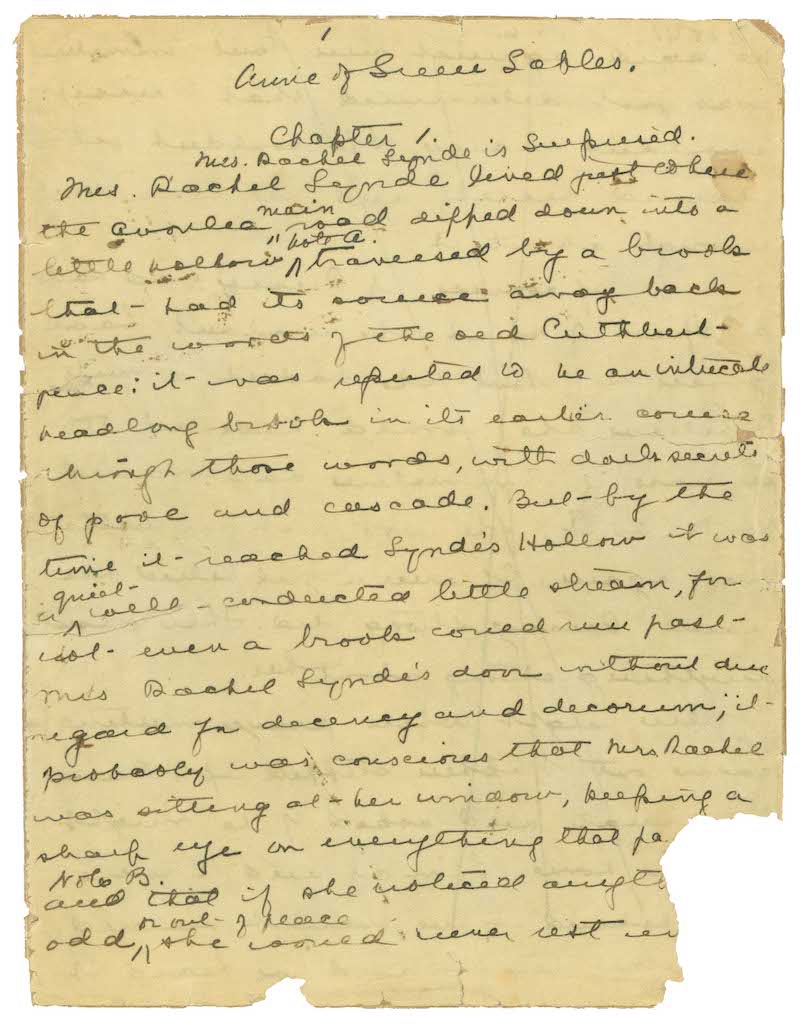 1
Anne of Green Gables.
Chapter 1.
Mrs. Rachel Lynde is Surprised.
Mrs. Rachel Lynde lived just where
the Avonlea main road dipped down into a
little hollow Note A. traversed by a brook
that had its source away back
in the woods of the old Cuthbert
place: it was reputed to be an intricate
headlong brook in its earlier course
through those woods, with dark secrets
of pool and cascade. But by the
time it reached Lynde's Hollow it was
a quiet well-conducted little stream, for
not even a brook could run past
Mrs Rachel Lynde's door without due
regard for decency and decorum; it
probably was conscious that Mrs. Rachel
was sitting at her window, keeping a
sharp eye on everything that pa
Note B.
and that if she noticed anyth
odd or out of place she would never rest